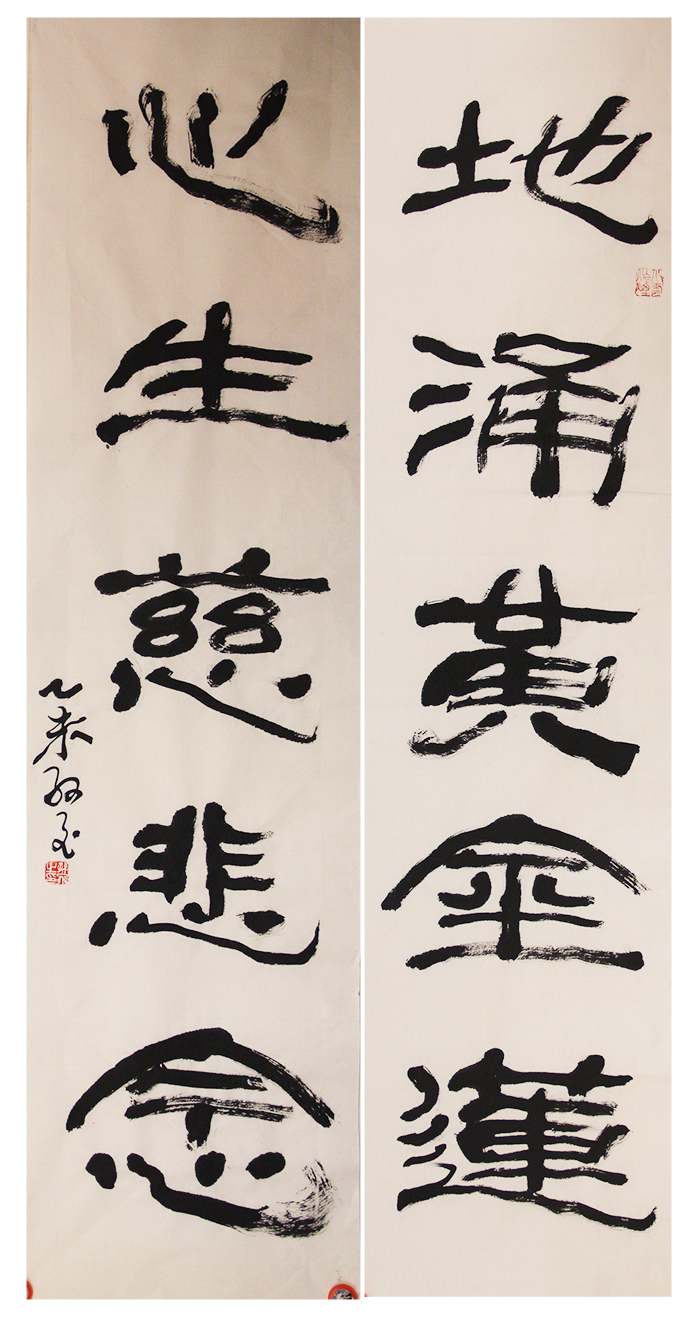 地涌黄金莲
心生慈悲念
乙未